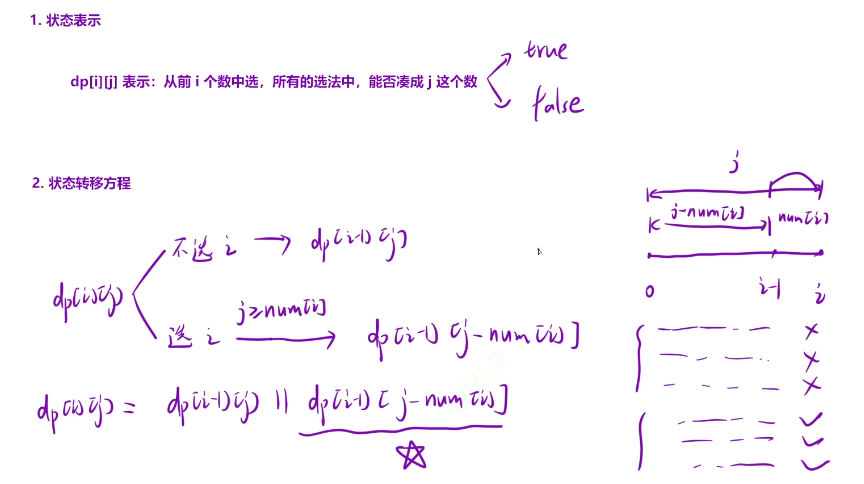 1. 状态表示
dp[i][j] 表示：从前 i 个数中选，所有的选法中，能否凑成 j 这个数
true
false
2. 状态转移方程
j
j-num[i] num[i]
0 i-1 i
dp[i][j]
不选 i → dp[i-1][j]
选 i j≥num[i] → dp[i-1][j-num[i]]
dp[i][j] = dp[i-1][j] || dp[i-1][j-num[i]]